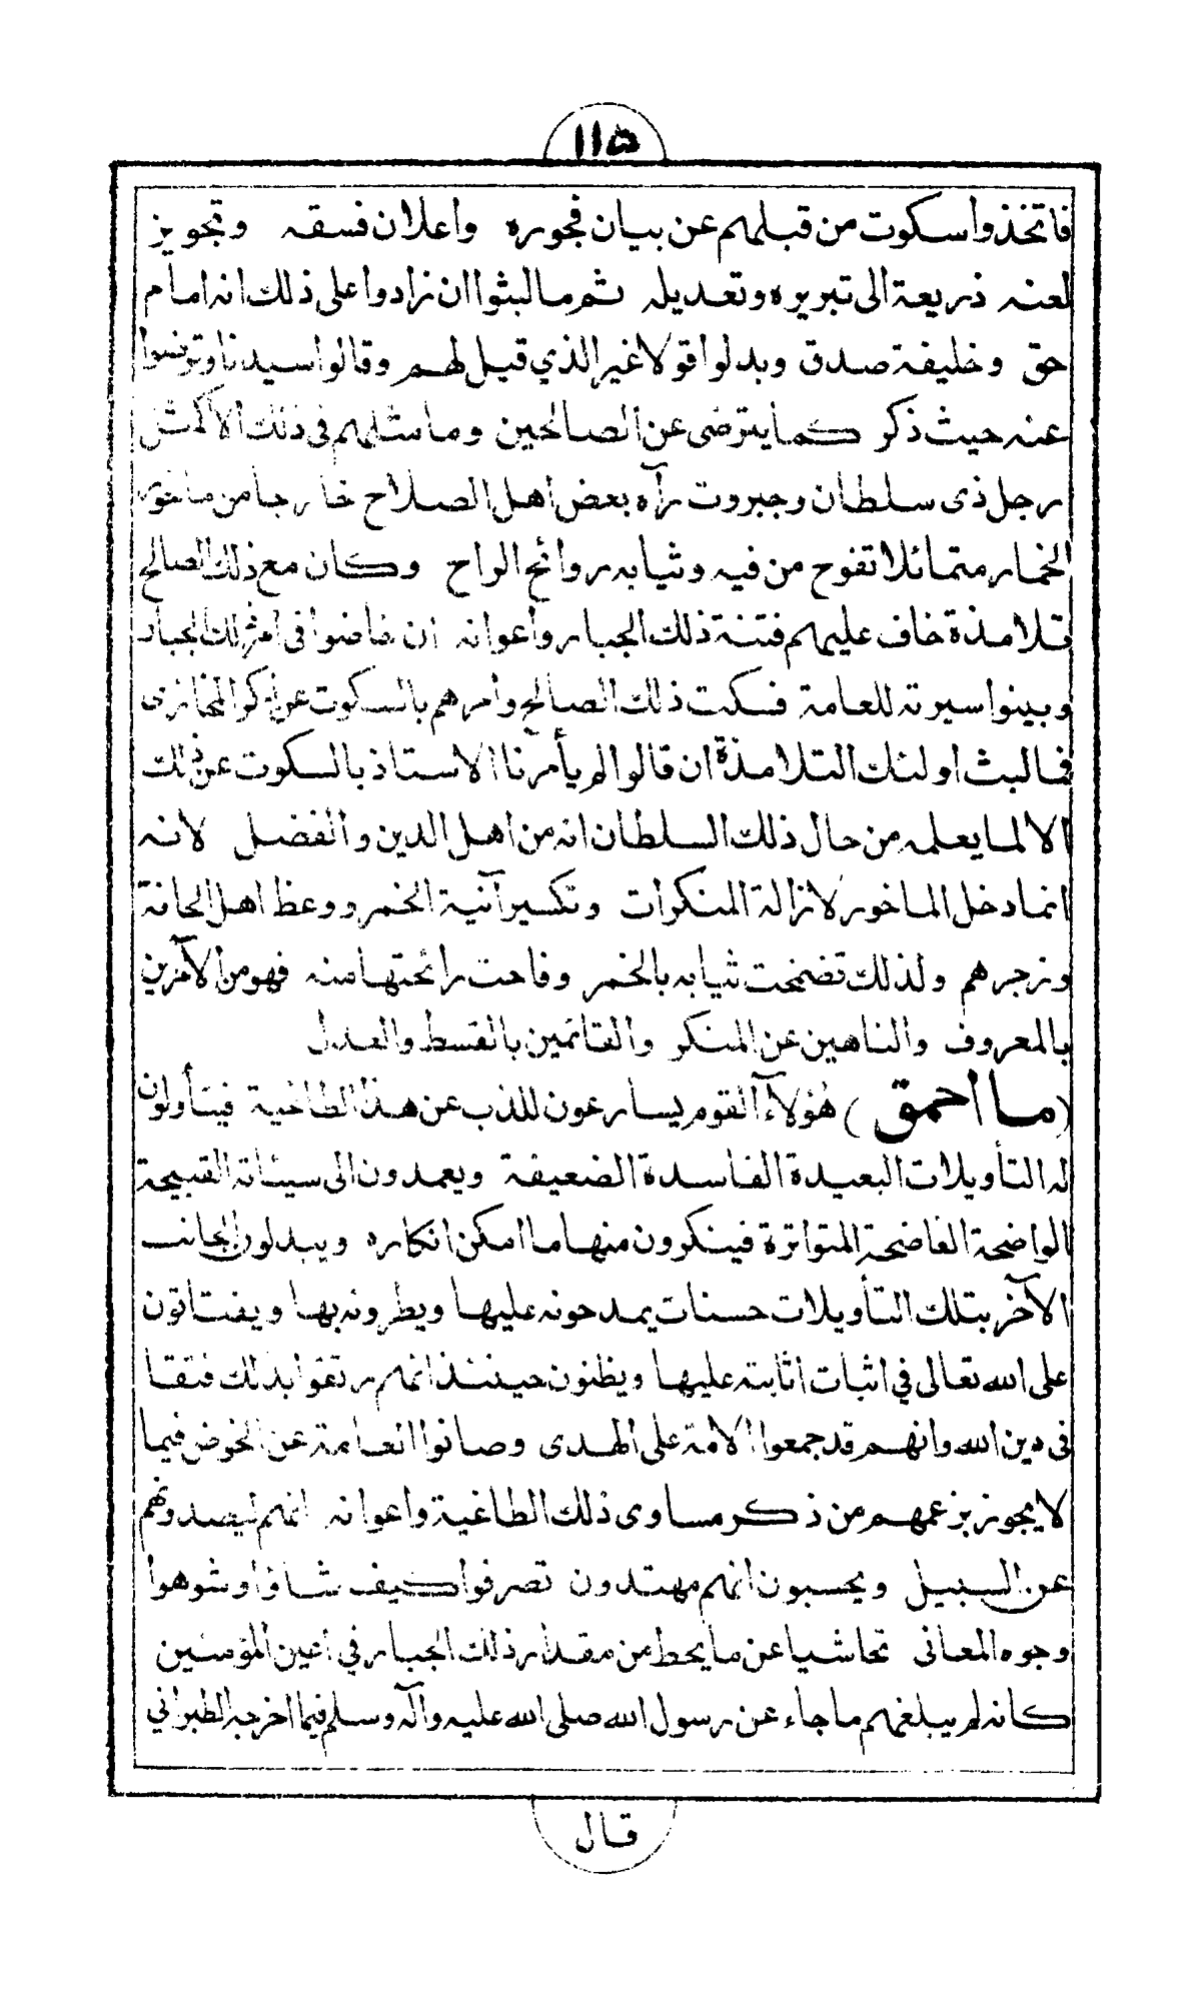 ١١٥
فاتخذوا سكوت من قبلهم عن بيان فجوره واعلان فسقه وتجويز
لعنه ذريعة الى تبريره وتعديله ثم ما لبثوا ان زادوا على ذلك انه امام
حق وخليفة صدق وبدلوا قولا غير الذي قيل لهم وقالوا سيدنا وترضوا
عنه حيث ذكر كما يترضى عن الصالحين وما مثلهم في ذلك الا كمثل
رجل ذى سلطان وجبروت رآه بعض اهل الصلاح خارجا من ماخور
الخمار متمائلا تفوح من فيه وثيابه روائح الراح وكان مع ذلك الصالح
تلامذة خاف عليهم فتنة ذلك الجبار واعوانه ان خاضوا في امر ذلك الجبار
وبينوا سيرته للعامة فسكت ذلك الصالح وامرهم بالسكوت عن ذكر المخازى
فما لبث اولئك التلامذة ان قالوا لم يأمرنا الاستاذ بالسكوت عن ذلك
الا لما يعلمه من حال ذلك السلطان انه من اهل الدين والفضل لانه
انما دخل الماخور لازالة المنكرات وتكسير آنية الخمر ووعظ اهل الحانة
وزجرهم ولذلك تضمخت ثيابه بالخمر وفاحت رائحتها منه فهو من الآمرين
بالمعروف والناهين عن المنكر والقائمين بالقسط والعدل
(ما احمق) هؤلاء القوم يسارعون للذب عن هذا الطاغية فيتأولون
له التأويلات البعيدة الفاسدة الضعيفة ويعمدون الى سيئاته القبيحة
الواضحة الفاضحة المتواترة فينكرون منها ما امكن انكاره ويبدلون الجانب
الآخر بتلك التأويلات حسنات يمدحونه عليها ويطرونه بها ويفتاتون
على الله تعالى في اثبات اثابته عليها ويظنون حينئذ انهم رتقوا بذلك فتقا
في دين الله وانهم قد جمعوا الامة على الهدى وصانوا العامة عن الخوض فيما
لا يجوز بزعمهم من ذكر مساوى ذلك الطاغية واعوانه انهم ليصدونهم
عن السبيل ويحسبون انهم مهتدون تصرفوا كيف شاؤا وشوهوا
وجوه المعانى تحاشيا عن ما يحط من مقدار ذلك الجبار في اعين المؤمنين
كانه لم يبلغهم ما جاء عن رسول الله صلى الله عليه وآله وسلم فيما اخرجه الطبراني
قال